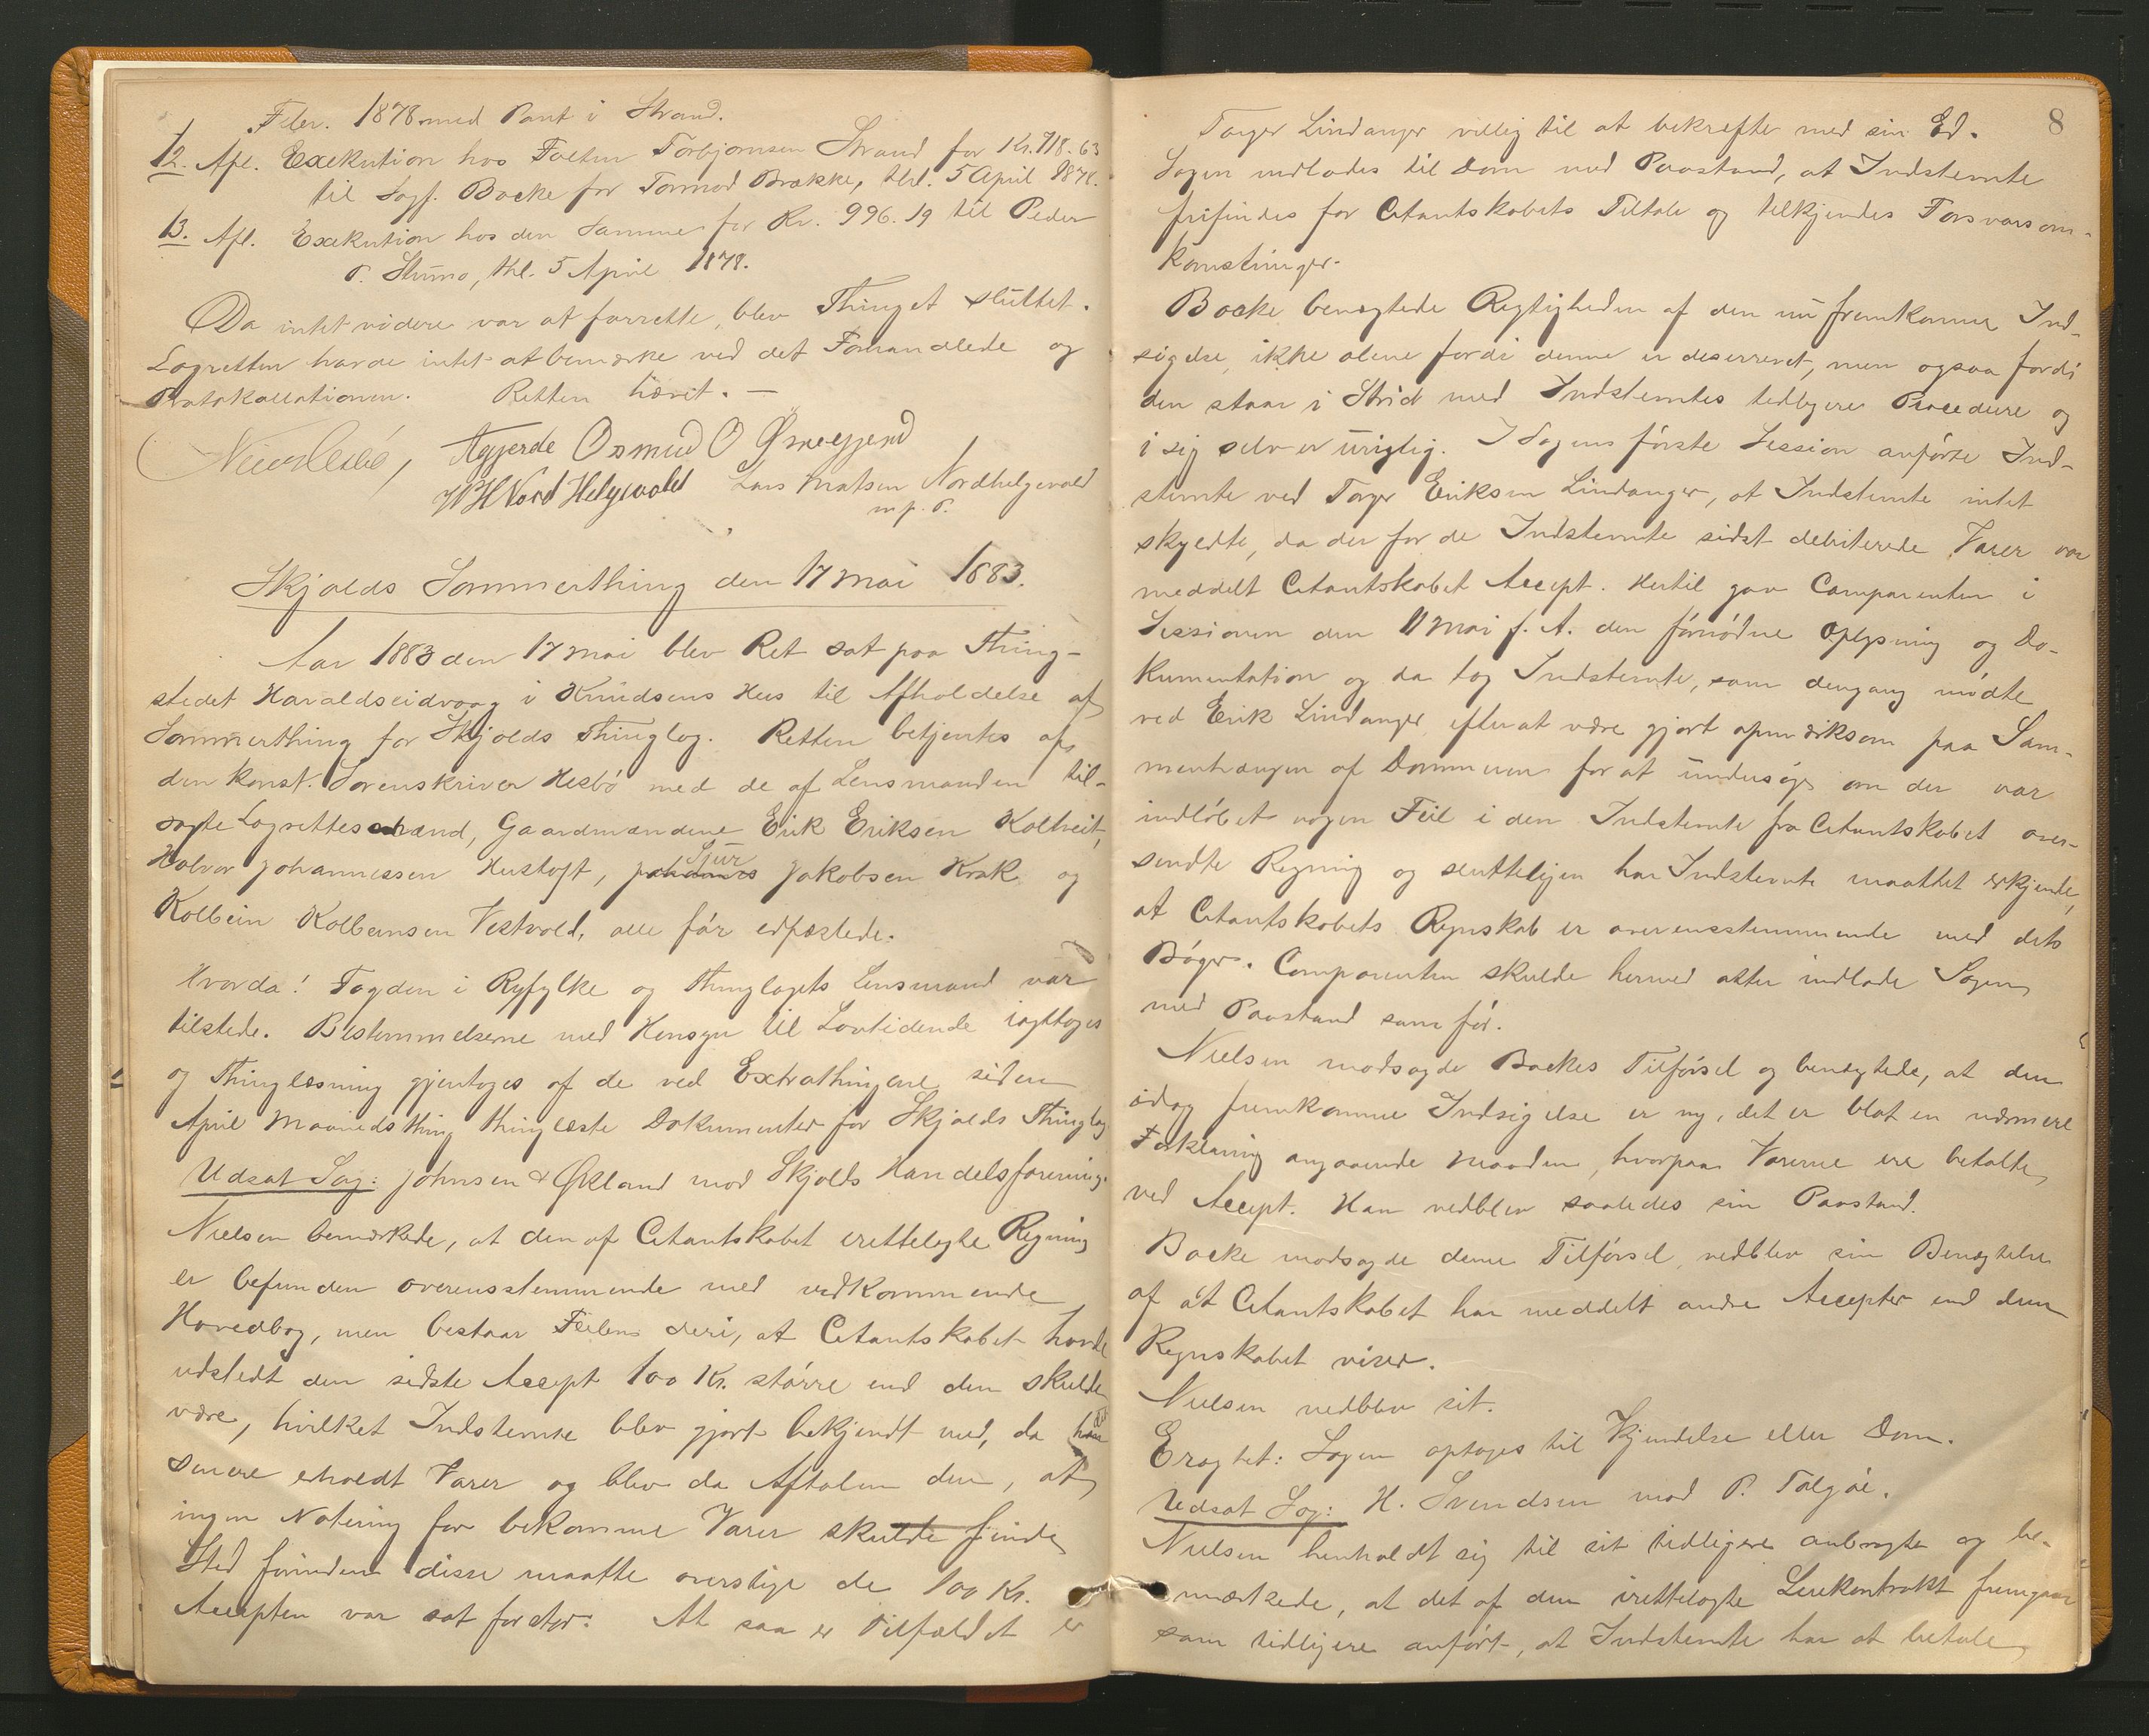 Febr. 1878 med Pant i Strand.
12. Afl. Exekution hos Tolten Torbjørnsen Strand for Kr. 718.63
til Sagf. Bocke for Tormod Brække, thl. 5 April 1878.
13. Afl. Exekution hos den Samme for Kr. 996.19 til Peder
P. Stumo, thl. 5 April 1878.
Da intet videre var at forrette, blev Thinget sluttet.
Lagretten havde intet at bemærke ved det Forhandlede og
Protokollationen. Retten hævet. —
Agjerde Osmud O
W H Nord Helgevold Lars Matsen Nordhelgevold
m. p. P.
Skjolds Sommerthing den 17 Mai 1883.
Aar 1883 den 17 Mai blev Ret sat paa Thing-
stedet Haraldseidvaag i Knudsens Hus til Afholdelse af
Sommerthing for Skjolds Thinglag. Retten betjentes af
den konst. Sorenskriver Hesbö med de af Lensmanden til-
sagte Lagrettesmænd, Gaardmændene Erik Eriksen Kolbeit,
Halvor Johannessen Hustoft, Johannes Sjur Jakobsen Krak og
Kolbein Kolbeinsen Vestvold, alle før edfæstede.
Hvorda! Fogden i Ryfylke og Thinglagets Lensmand var
tilstede. Bestemmelserne med Hensyn til Lovtidende iagttoges
og Thinglæsning gjentoges af de ved Extrathingene siden
April Maanedsthing thinglæste Dokumenter for Skjolds Thinglag
Udsat Sag: Johnsen & Økland mod Skjolds Handelsforening.
Nielsen bemærkede, at den af Citantskabet irettelagte Regning
er befunden overensstemmende med vedkommende
Hovedbog, men bestaar Feilen deri, at Citantskabet havde
udstedt den sidste Accept 100 Kr. større end den skulde
være, hvilket Indstevnte blev gjort bekjendt med, da det
senere erholdt Varer og blev da Aftalen den, at
ingen Notering for bekomne Varer skulde finde
Sted forinden disse maatte overstige de 100 Kr.
Accepten var sat for stor. At saa er Tilfældet er
8
Torger Lindanger villig til at bekræfte med sin Ed.
Sagen indlades til Dom med Paastand, at Indstevnte
frifindes for Citantskabets Tiltale og tilkjendes Forsvarsom-
kostninger.
Bocke benegtede Rigtigheden af den nu fremkomne Ind-
sigelse, ikke alene fordi denne er deserveret, men ogsaa fordi
den staar i Strid med Indstevntes tidligere Procedure og
i sig selv er urigtig. I Sagens første Session anførte Ind-
stevnte ved Torger Eriksen Lindanger, at Indstevnte intet
skyldte, da der for de Indstevnte sidst debiterede Varer var
meddelt Citantskabet Accept. Hertil gav Comparenten i
Sessionen den 11 Mai f. A. den fornødne Oplysning og Do-
kumentation og da tog Indstevnte, som dengang mødte
ved Erik Lindanger, efter at være gjort opmærksom paa Sam-
menhængen af Dommeren for at undersøge om der var
indløbet nogen Feil i den Indstevnte fra Citantskabet over-
sendte Regning og sluttelig har Indstevnte maattet erkjende,
at Citantskabets Regnskab er overensstemmende med dets
Bøger. Comparenten skulde hermed atter indlade Sagen
med Paastand som før.
Nielsen modsagde Bockes Tilførsel og benegtede, at den
idag fremkomne Indsigelse er ny, det er blot en nærmere
Forklaring angaaende Maaden, hvorpaa Varerne ere betalte
ved Accept. Han vedblev saaledes sin Paastand.
Bocke modsagde denne Tilførsel, vedblev sin Benegtelse
af at Citantskabet har meddelt andre Accepter end dem
Regnskabet viser.
Nielsen vedblev sit.
Eragtet: Sagen optages til Kjendelse eller Dom.
Udsat Sag: H. Svendsen mod P. Talgøe.
Nielsen henholdt sig til sit tidligere anbragte og be-
mærkede, at det af den irettelagte Leiekontrakt fremgaar
som tidligere anført, at Indstevnte har at betale